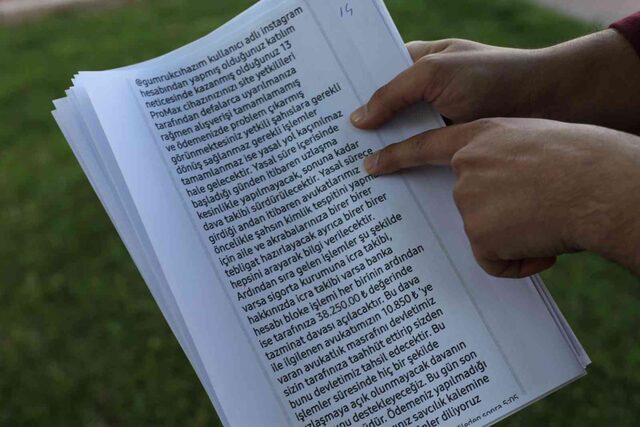 14
@gumrukcıhazım kullanıcı adlı instagram
hesabından yapmış olduğunuz katılım
neticesinde kazanmış olduğunuz 13
ProMax cihazınızınızı site yetkilileri
tarafından defalarca uyarılmanıza
rağmen alışverişi tamamlamamış
ve ödemenizde problem çıkarmış
görünmektesiniz yetkili şahıslara gerekli
dönüş sağlamaz gerekli işlemler
tamamlanmaz ise yasal yol kaçınılmaz
hale gelecektir. Yasal süre içerisinde
başladığı günden itibaren uzlaşma
kesinlikle yapılmayacak, sonuna kadar
dava takibi sürdürülecektir. Yasal sürece
girdiği andan itibaren avukatlarımız
öncelikle şahsın kimlik tespitini yapmak
için aile ve akrabalarınıza birer birer
tebligat hazırlayacak ayrıca birer birer
hepsini arayarak bilgi verilecektir.
Ardından sıra gelen işlemler şu şekilde
varsa sigorta kurumuna icra takibi,
hakkınızda icra takibi varsa banka
hesabı bloke işlemi her birinin ardından
ise tarafınıza 38.250.00 ₺ değerinde
tazminat davası açılacaktır. Bu dava
ile ilgilenen avukatımızın 10.850 ₺ 'ye
varan avukatlık masrafını devletimiz
sizin tarafınıza taahhüt ettirip sizden
bunu devletimiz tahsil edecektir. Bu
işlemler süresinde hiç bir şekilde
uzlaşmaya açık olunmayacak davanın
bunu destekleyeceğiz. Bu gün son
üdür. Ödemeniz yapılmadığı
nız savcılık kalemine
ler diliyoruz